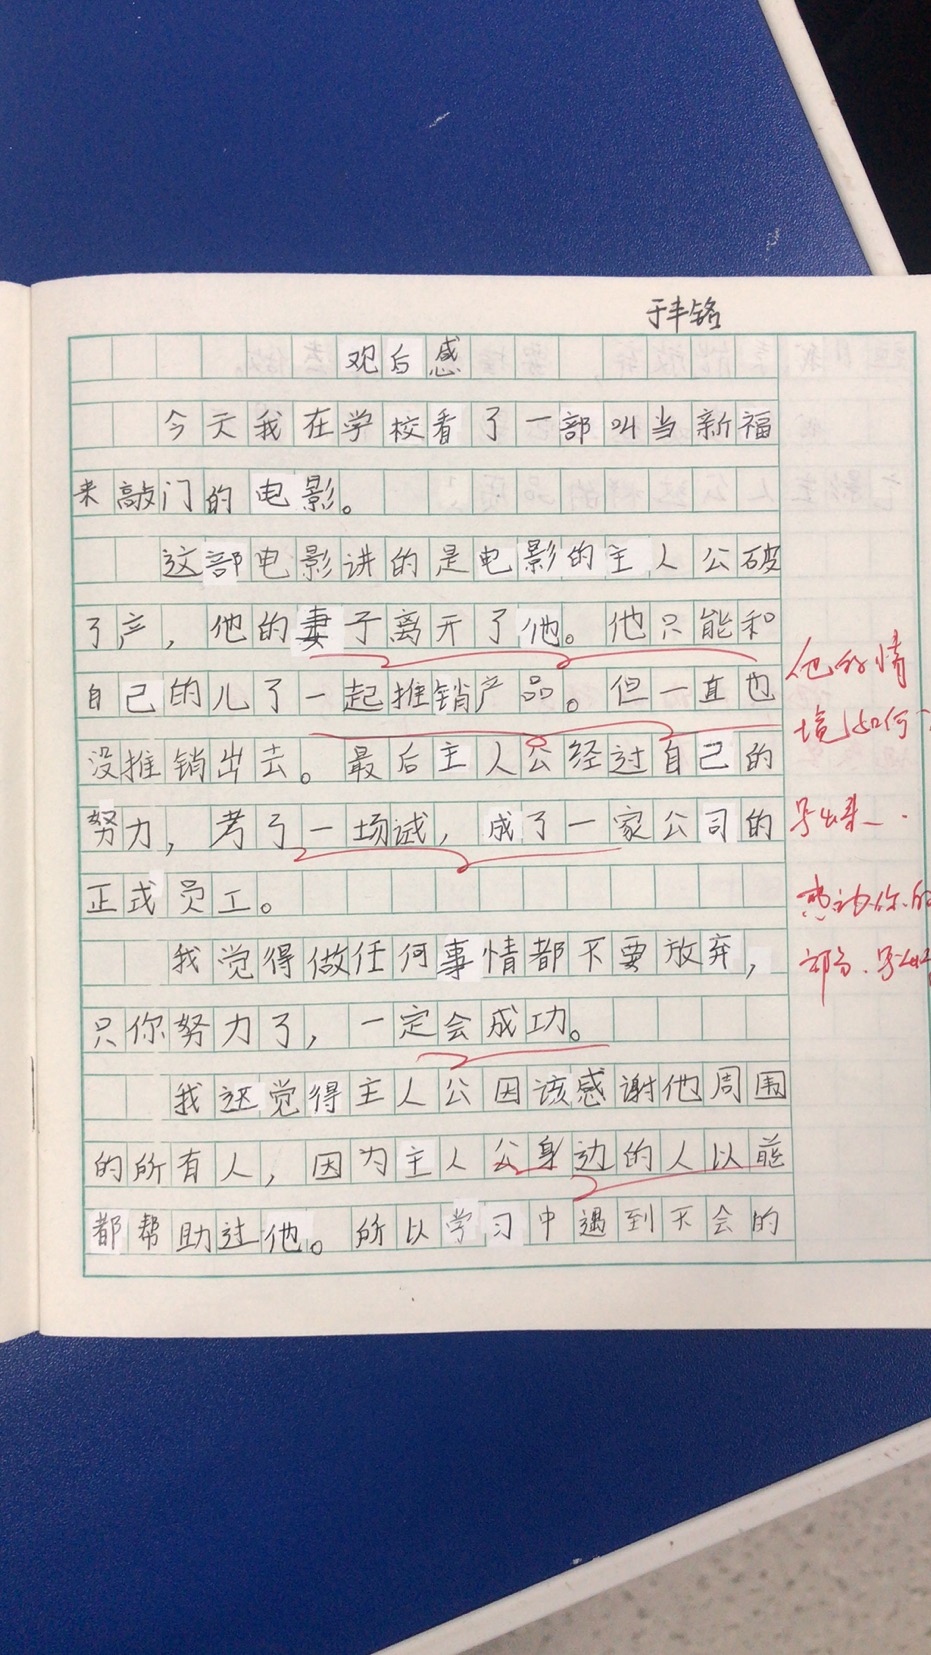 于丰铭
观后感
今天我在学校看了一部叫当新福
来敲门的电影。
这部电影讲的是电影的主人公破
了产，他的妻子离开了他。他只能和
自己的儿子一起推销产品。但一直也
没推销出去。最后主人公经过自己的
努力，考了一场试，成了一家公司的
正式员工。
我觉得做任何事情都不要放弃，
只你努力了，一定会成功。
我还觉得主人公因该感谢他周围
的所有人，因为主人公身边的人以前
都帮助过他。所以学习中遇到不会的
他的情
境如何？
写出来
感动你的
部分.写